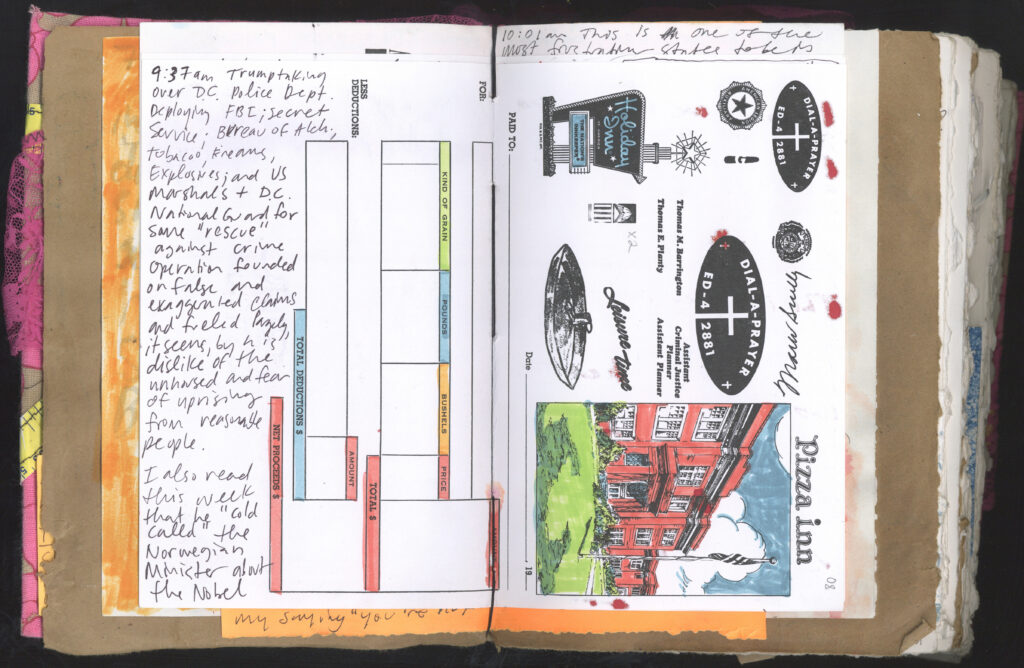 9:37am Trump taking
over DC. Police Dept.
Deploying FBI; secret
Service; Bureau of Alch,
tobacco, Firearms,
Explosives; and US
Marshals + D.C.
National Guard for
some "rescue"
against crime
operation founded
on false and
exaggerated claims
and fueled largely,
it seems, by his
dislike of the
unhoused and fear
of uprising
from reasonable
people.
I also read
this week
that he "cold
called" the
Norwegian
Minister about
the Nobel
my saying "you're
LESS
DEDUCTIONS:
FOR:
KIND OF GRAIN
POUNDS
BUSHELS
PRICE
AMOUNT
TOTAL $
TOTAL DEDUCTIONS $
NET PROCEEDS $
10:01am This is one of the
most frustration states to be in
PAID TO:
Date
, 19
Holiday
Inn
THE NATION'S
INNKEEPER
DIAL-A-PRAYER
ED-4 2881
X2
Thomas M. Barrington
Thomas E. Planty
Assistant
Criminal Justice
Planner
Assistant Planner
DIAL-A-PRAYER
ED-4 2881
Leisure time
Pizza inn
80